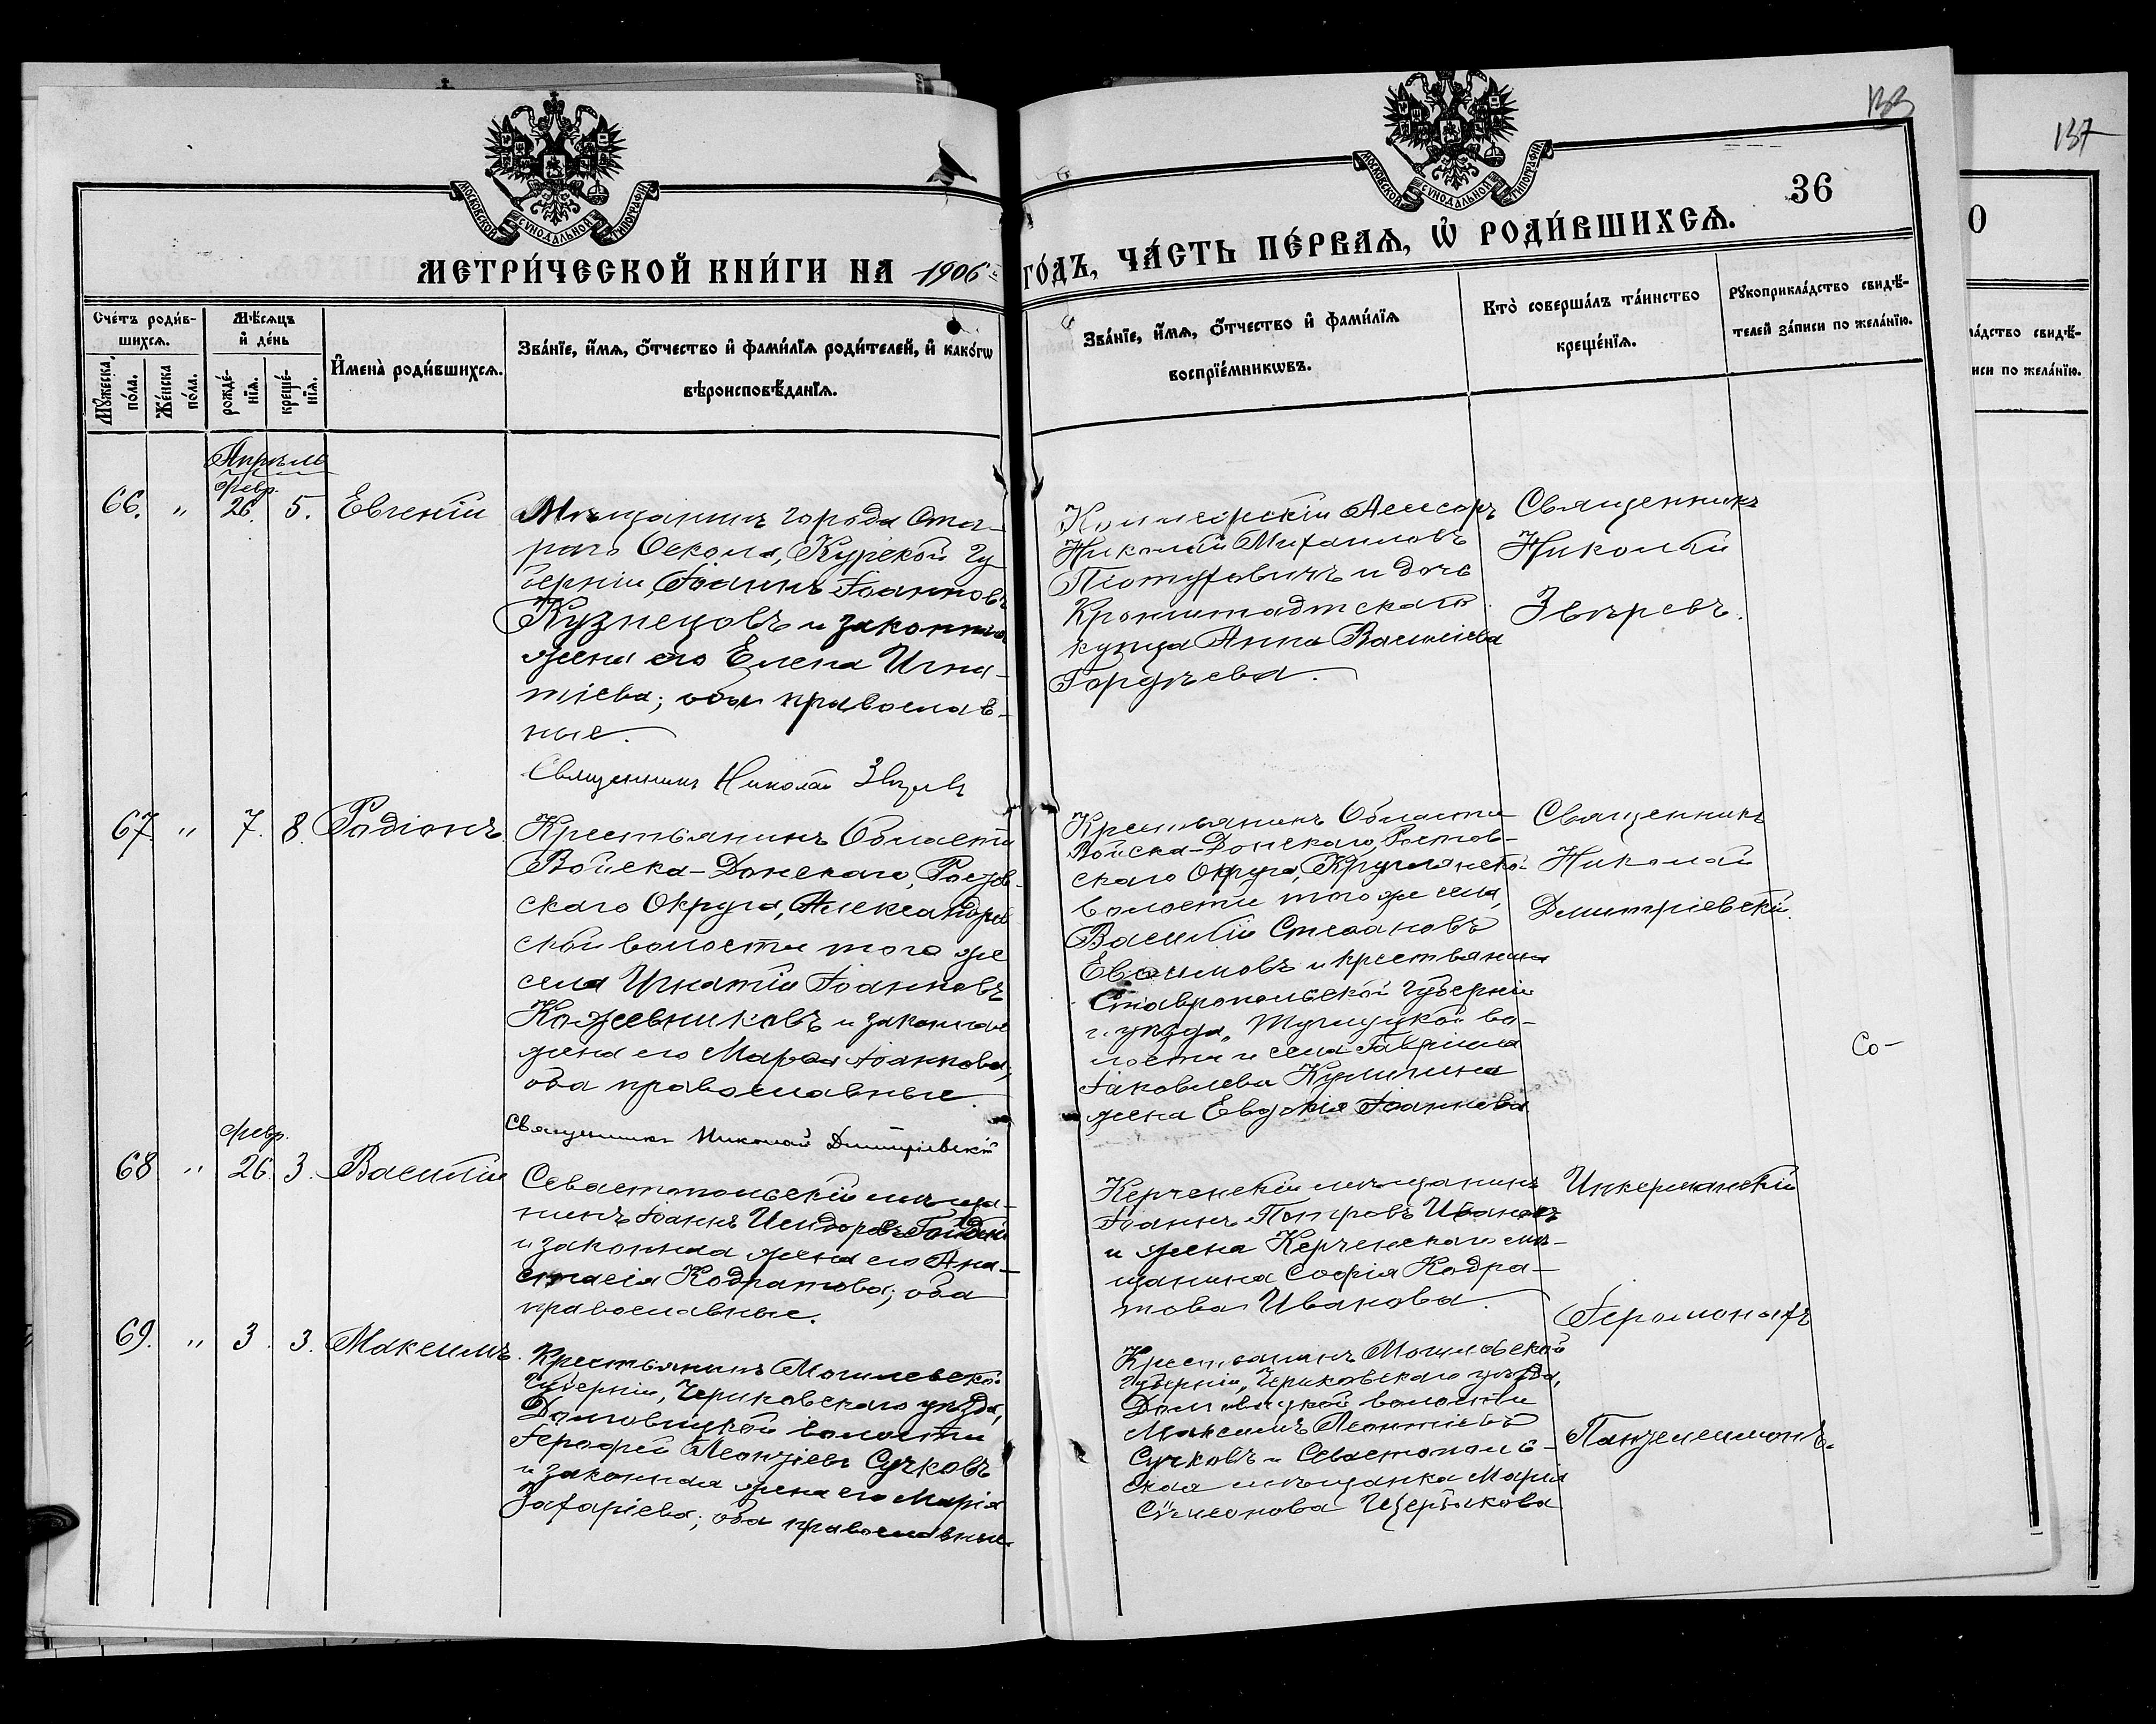 133
137
МОСКОВСКОЙ СУНОДАЛЬНОЙ ТИПОГРАФІИ
МОСКОВСКОЙ СУНОДАЛЬНОЙ ТИПОГРАФІИ
36
МЕТРИ́ЧЕСКОЙ КНИ́ГИ НА 1906 ГО́ДЪ, ЧА́СТЬ ПЕ́РВАѦ, Ѡ҆ РОДИ́ВШИХСѦ.
Сче́тъ роди́в-
шихсѧ.
Мꙋ́жеска по́ла.
Же́нска по́ла.
Мѣ́сѧцъ
и҆ де́нь
рожде́-
нїѧ.
креще́-
нїѧ.
И҆мена̀ роди́вшихсѧ.
Зва́нїе, и҆́мѧ, ѻ҆́тчество и҆ фами́лїѧ роди́телей, и҆ како́гѡ
вѣроисповѣ́данїѧ.
Зва́нїе, и҆́мѧ, ѻ҆́тчество и҆ фами́лїѧ
воспрїе́мникѡвъ.
Кто̀ соверша́лъ та́инство
креще́нїѧ.
Рꙋкоприкла́дство свидѣ́-
телей за́писи по жела́нїю.
Апрѣль
февр.
66. " 26. 5. Евгеній
Мѣщанинъ города Ста-
раго Оскола, Курской Гу
берніи Іоаннъ Іоанновъ
Кузнецовъ и законная
жена его Елена Игна-
тіева; оба православ-
ные.
Священникъ Николай Звѣревъ
Николай Михаиловъ
и дочь
Кронштадтскаго
купца Анна Васильева
Гордѣева.
Священникъ
Николай
Звѣревъ.
67. " 7. 8. Родіонъ
Крестьянинъ Области
Войска-Донскаго, Ростов-
скаго Округа, Александров
ской волости того же
села Игнатій Іоанновъ
Кожевниковъ и законная
жена его Марѳа Іоаннова;
оба православные
Священникъ Николай Дмитріевскій
Крестьянинъ Области
Войска-Донскаго, Ростов-
скаго Округа,
волости того же села,
Василій Стефановъ
Евѳимовъ и крестьянина
Ставропольской Губерніи
и уѣзда, во-
лости и села Гавріила
Іаковлева
жена Евдокія Іоаннова
Священникъ
Николай
Дмитріевскій.
Со-
февр.
68. " 26. 3. Василій
Севастопольскій мѣща-
нинъ Іоаннъ Исидоровъ
и законная жена его Ана-
стасія Кодратова; оба
православные.
Керченскій мѣщанинъ
Іоаннъ Петровъ Ивановъ
и жена Керченскаго мѣ-
щанина Софія Кодра-
това Иванова.
Инкерманскій
Іеромонахъ
Пантелеимонъ.
69. " 3. 3. Максимъ.
Крестьянинъ Могилевской
Губерніи, Чериковскаго уѣзда,
Долговицкой волости
Іероѳей Леонтіевъ Сучковъ
и законная жена его Марія
Захаріева; оба православные.
Крестьянинъ Могилевской
Губерніи, Чериковскаго уѣзда,
Долговицкой волости
Максимъ Леонтіевъ
Сучковъ и Севастополь-
ская мѣщанка Марія
Сѵмеонова Щербакова